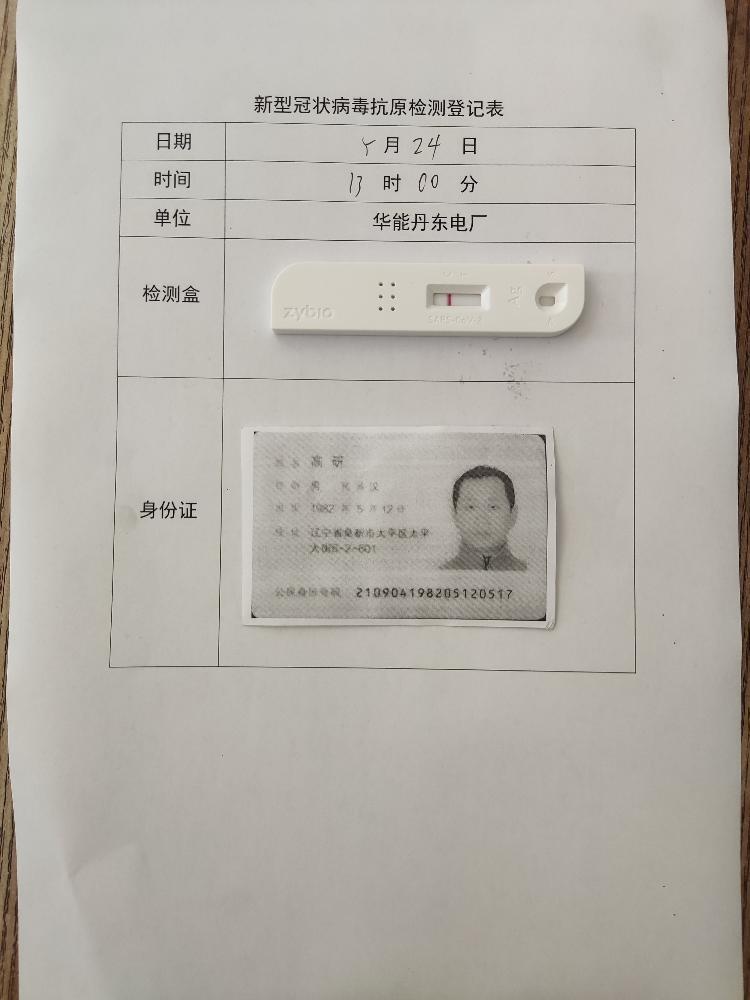 新型冠状病毒抗原检测登记表
日期 5月24日
时间 13时00分
单位 华能丹东电厂
检测盒
zybio
SARS-CoV-2
Ag
身份证
姓名 高研
性别 男 民族 汉
1982年5月12日
住址 辽宁省阜新市太平区太平
大街5-2-601
公民身份号码 210904198205120517